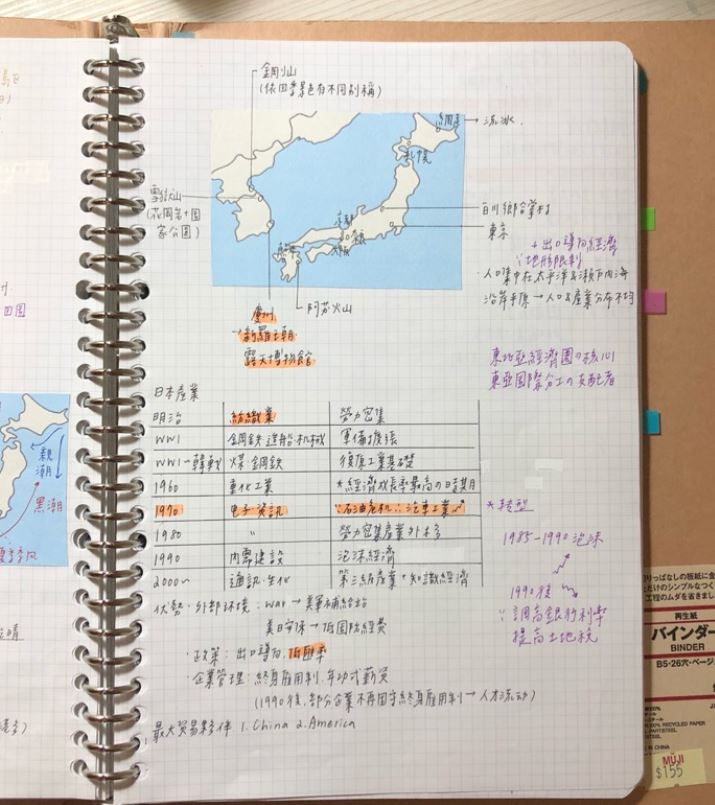 金剛山
(依四季景色有不同別稱)
網走 → 流冰
札幌
雪嶽山
(花岡岩+國
家公園)
白川鄉合掌村
東京
京都
大阪
阿苏火山
慶州
→新羅王朝
露天博物館
+出口導向經濟
∵地形限制
人口集中在太平洋&瀨戶內海
沿岸平原→人口&產業分布不均
東北亞經濟圈の核心
東亞國際分工の支配者
日本產業
明治 紡織業 勞力密集
WW1 鋼鉄 造船 机械 軍備擴張
WW1~韓戰 煤 鋼鉄 復原工業基礎
1960 重化工業 *經濟成長率最高の時期
1970 电子·資訊 *石油危机∴汽車工業
1980 〃 勞力密集產業外移
1990 內需建設 泡沫經濟
2000~ 通訊·生化 第三級產業·知識經濟
*轉型
1985-1990 泡沫
1990後
∵調高銀行利率
提高土地稅
优勢·外部环境：war→美軍補給站
美日安保→低國防經費
·政策：出口導向,低匯率
·企業管理：終身雇用制,年功式薪資
(1990後,部分企業不再固守終身雇用制→人才流动)
最大貿易夥伴 1.China 2.America
親
潮
黑潮
夏季季风
田園
再生紙
バインダー
BINDER
B5·26穴·ページ
MUJI
$155